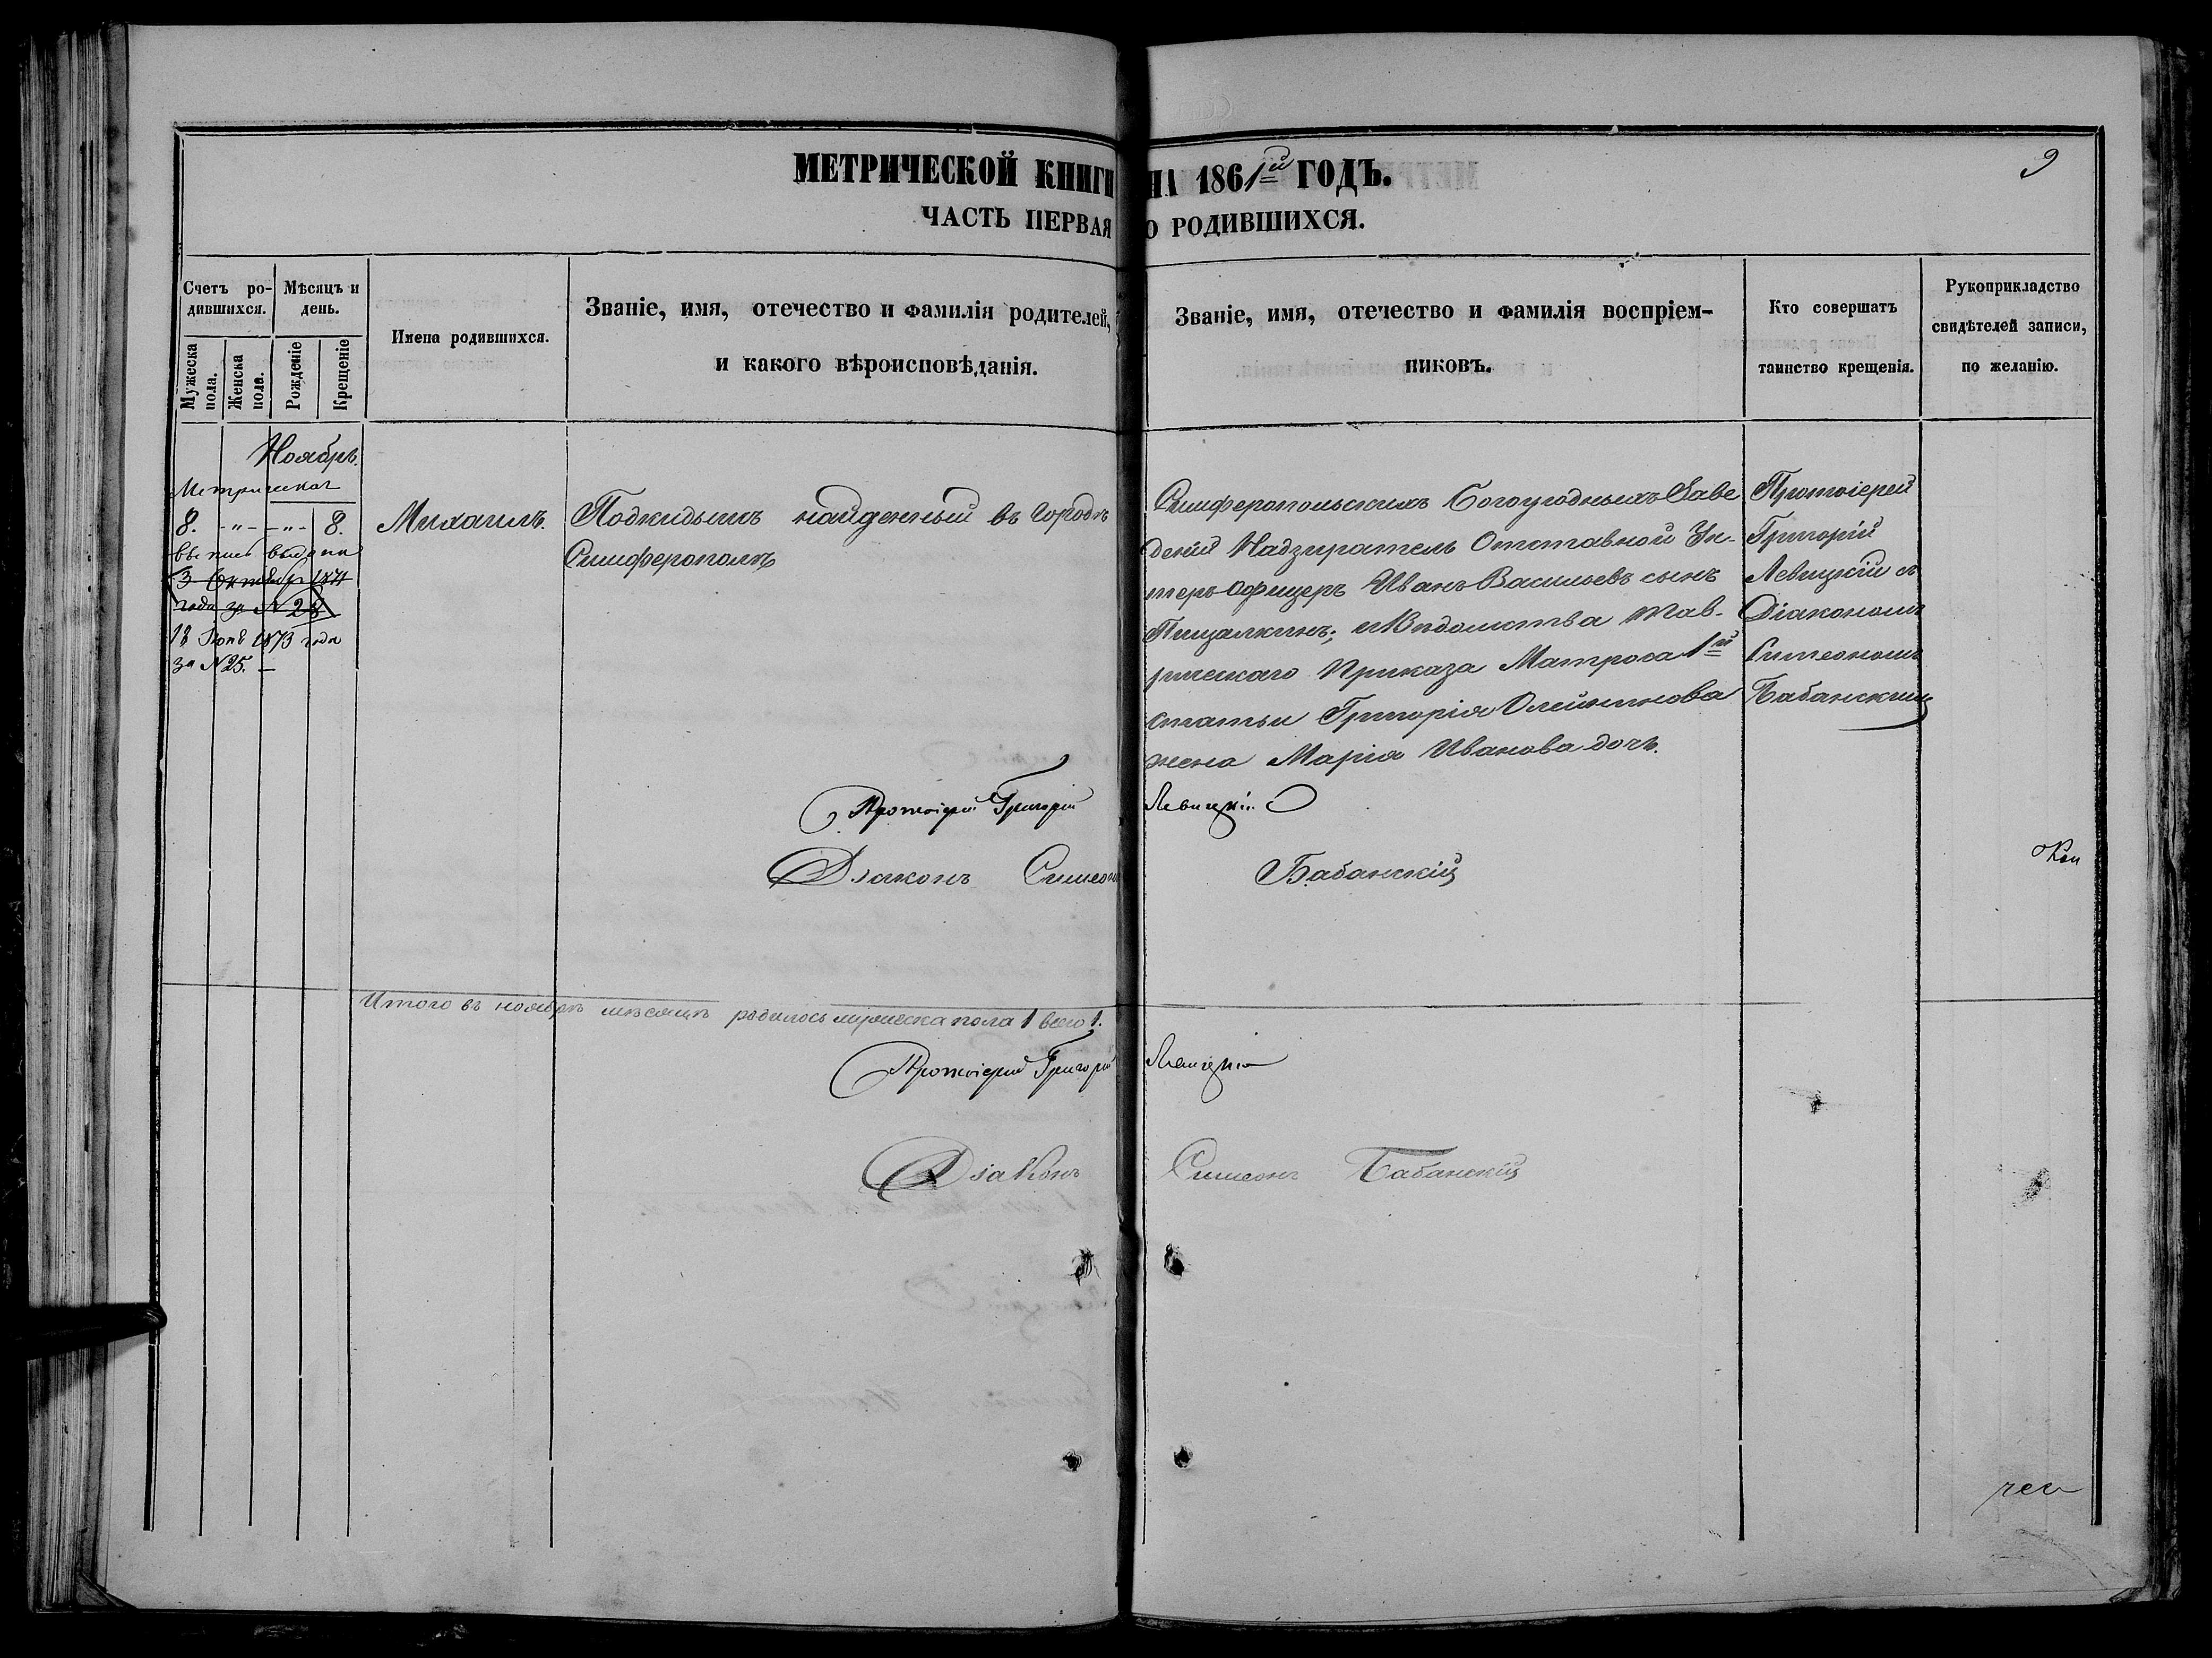 МЕТРИЧЕСКОЙ КНИГИ НА 1861й ГОДЪ.
9
ЧАСТЬ ПЕРВАЯ О РОДИВШИХСЯ.
Счетъ ро-
дившихся.
Мужеска
пола.
Женска
пола.
Мѣсяцъ и
день.
Рожденіе
Крещеніе
Имена родившихся.
Званіе, имя, отечество и фамилія родителей,
и какого вѣроисповѣданія.
Званіе, имя, отечество и фамилія воспріем-
никовъ.
Кто совершатъ
таинство крещенія.
Рукоприкладство
свидѣтелей записи,
по желанію.
Ноябрь.
Метрическая
8. -"- -"- 8.
выпись выдана
3 Октября 1871
года за N 28
18 1873 года
за N 25.
Михаилъ.
Подкидышъ найденный въ городѣ
Симферополѣ
Симферопольскихъ Богоугодныхъ Заве
деній Надзиратель Отставной Ун-
теръ-Офицеръ Иванъ Васильевъ сынъ
Пищалкинъ; и Вѣдомства Тав-
рическаго Приказа Матроса 1й
статьи Григорія Олейникова
жена Марія Иванова дочь.
Протоіерей
Григорій
Левицкій съ
Діакономъ
Симеономъ
Бабанскимъ
Протоіерей Григорій Левицкій
Діаконъ Симеонъ Бабанскій
Итого въ ноябрѣ мѣсяцѣ родилось мужеска пола 1 всего 1.
Протоіерей Григорій Левицкій
Діаконъ Симеонъ Бабанскій